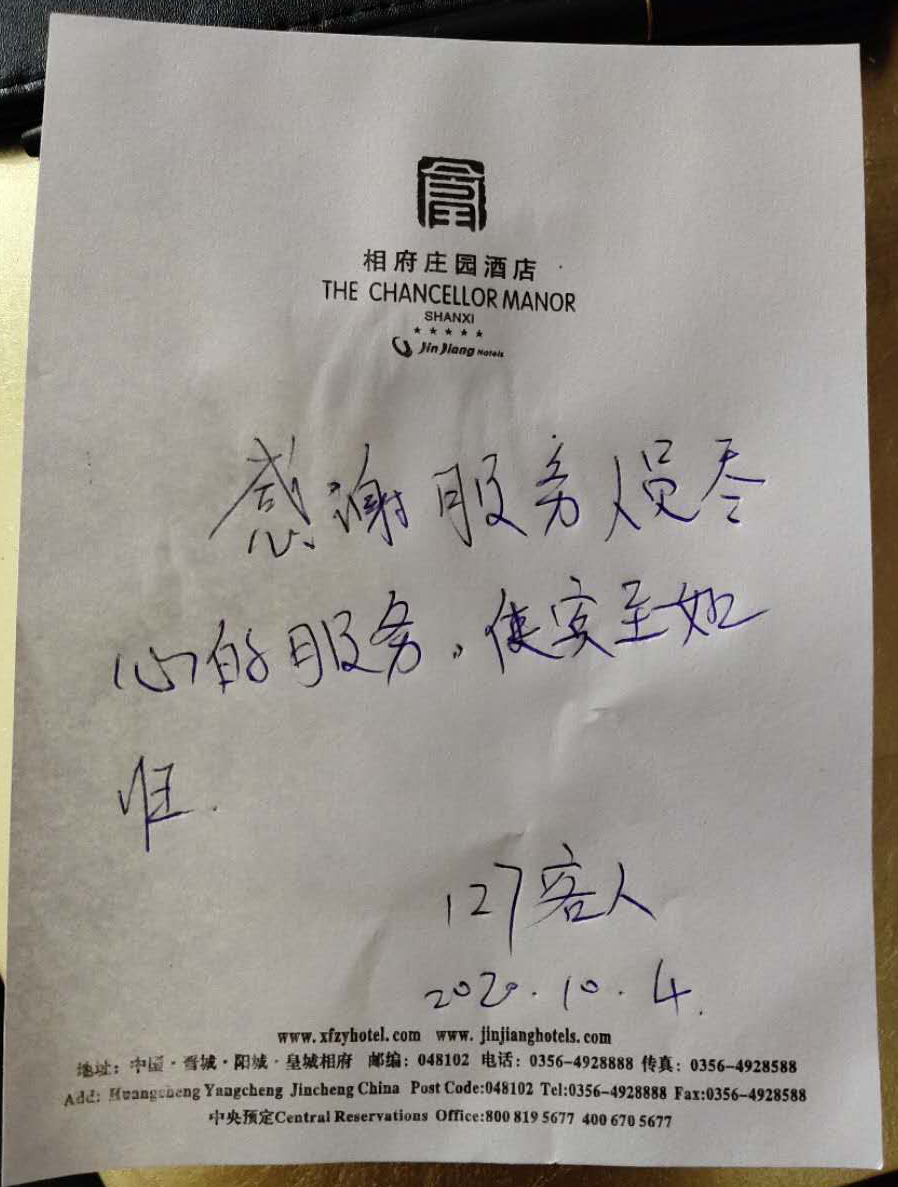 相府庄园酒店
THE CHANCELLOR MANOR
SHANXI
★★★★★
Jin Jiang Hotels
感谢服务员尽
心的服务,使宾至如
归.
127客人
2020.10.4.
www.xfzyhotel.com www.jinjianghotels.com
地址:中国·晋城·阳城·皇城相府 邮编:048102 电话:0356-4928888 传真:0356-4928588
Add: Huangcheng Yangcheng Jincheng China Post Code:048102 Tel:0356-4928888 Fax:0356-4928588
中央预定Central Reservations Office:800 819 5677 400 670 5677